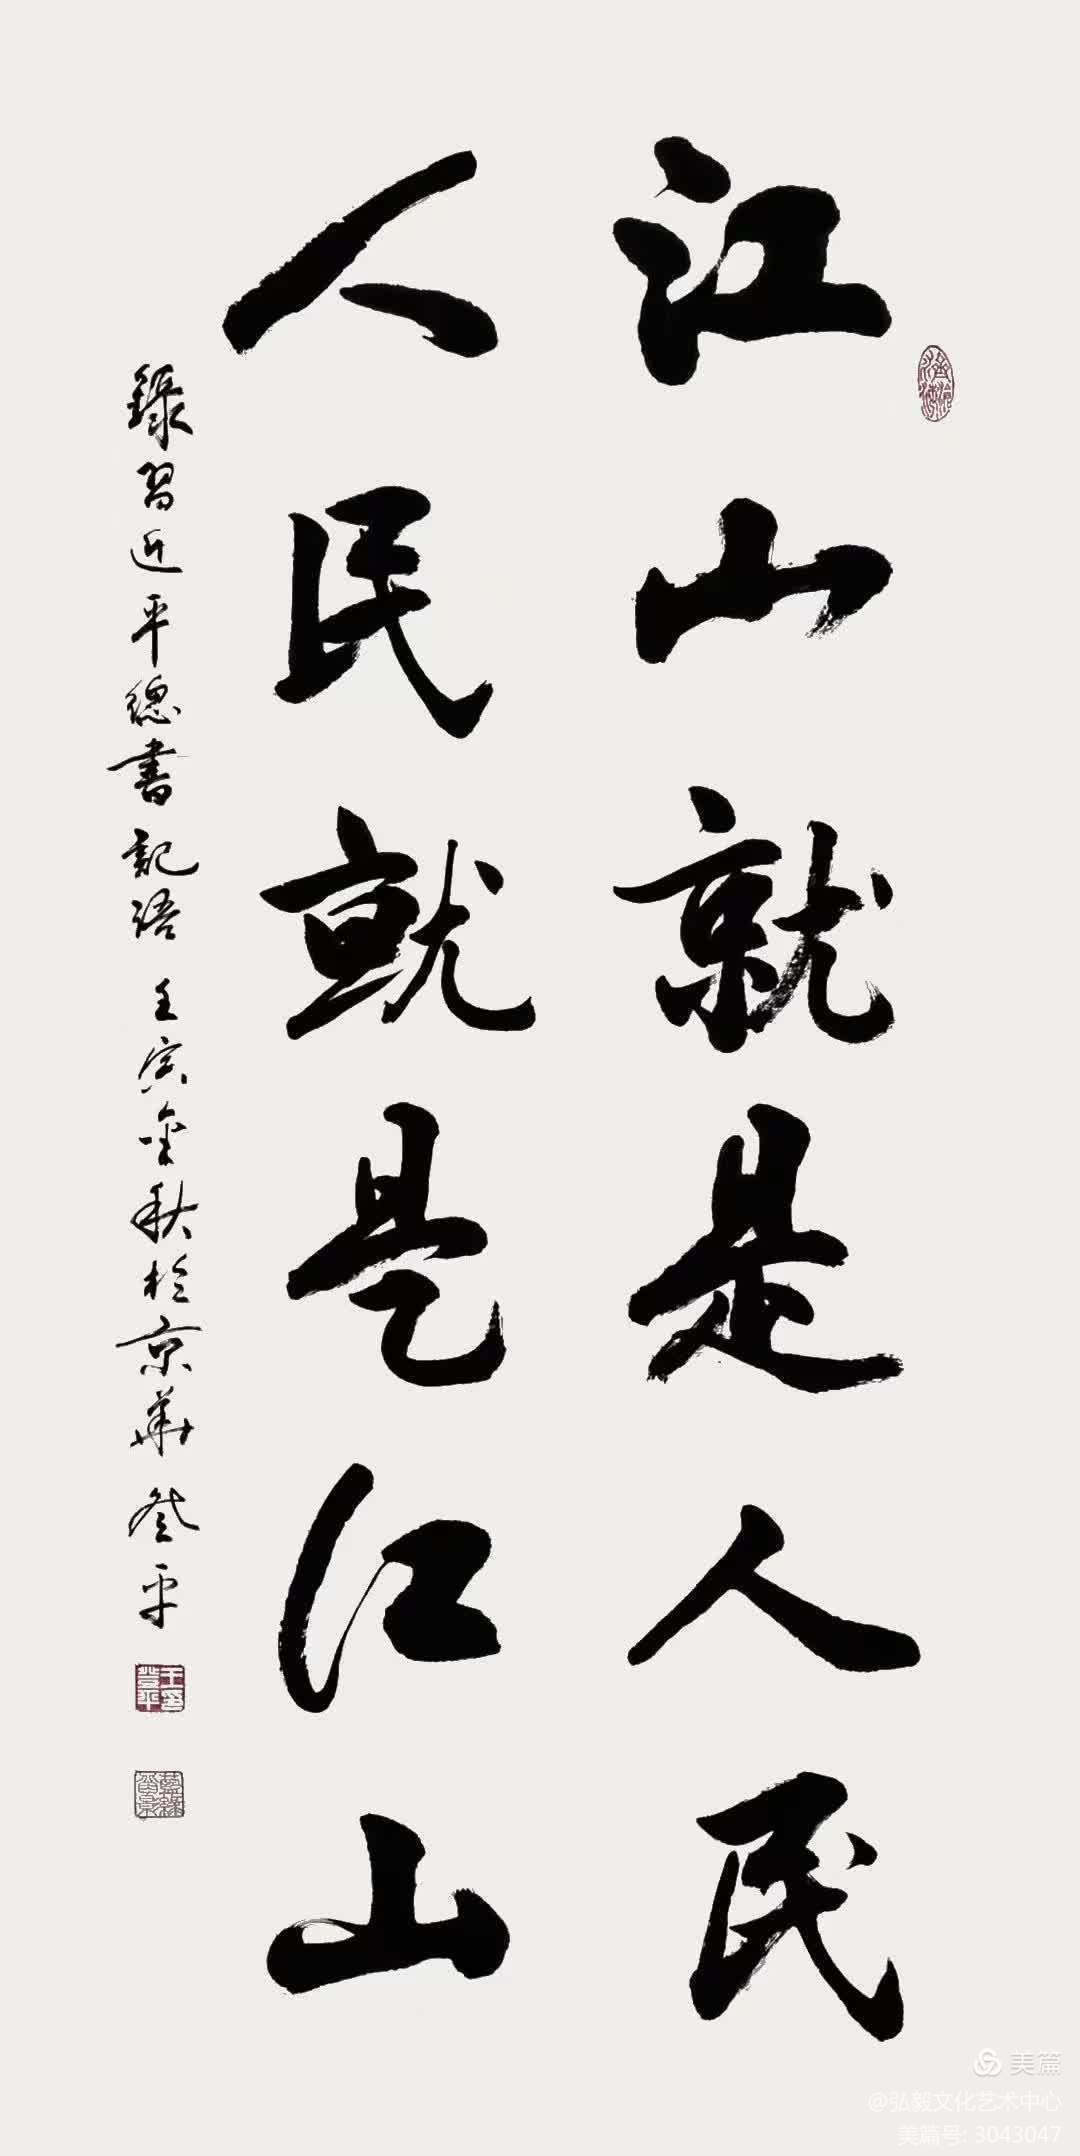 江山就是人民
人民就是江山
錄習近平總書記語 壬寅金秋於京華 登平
美篇
@弘毅文化艺术中心
美篇号: 3043047